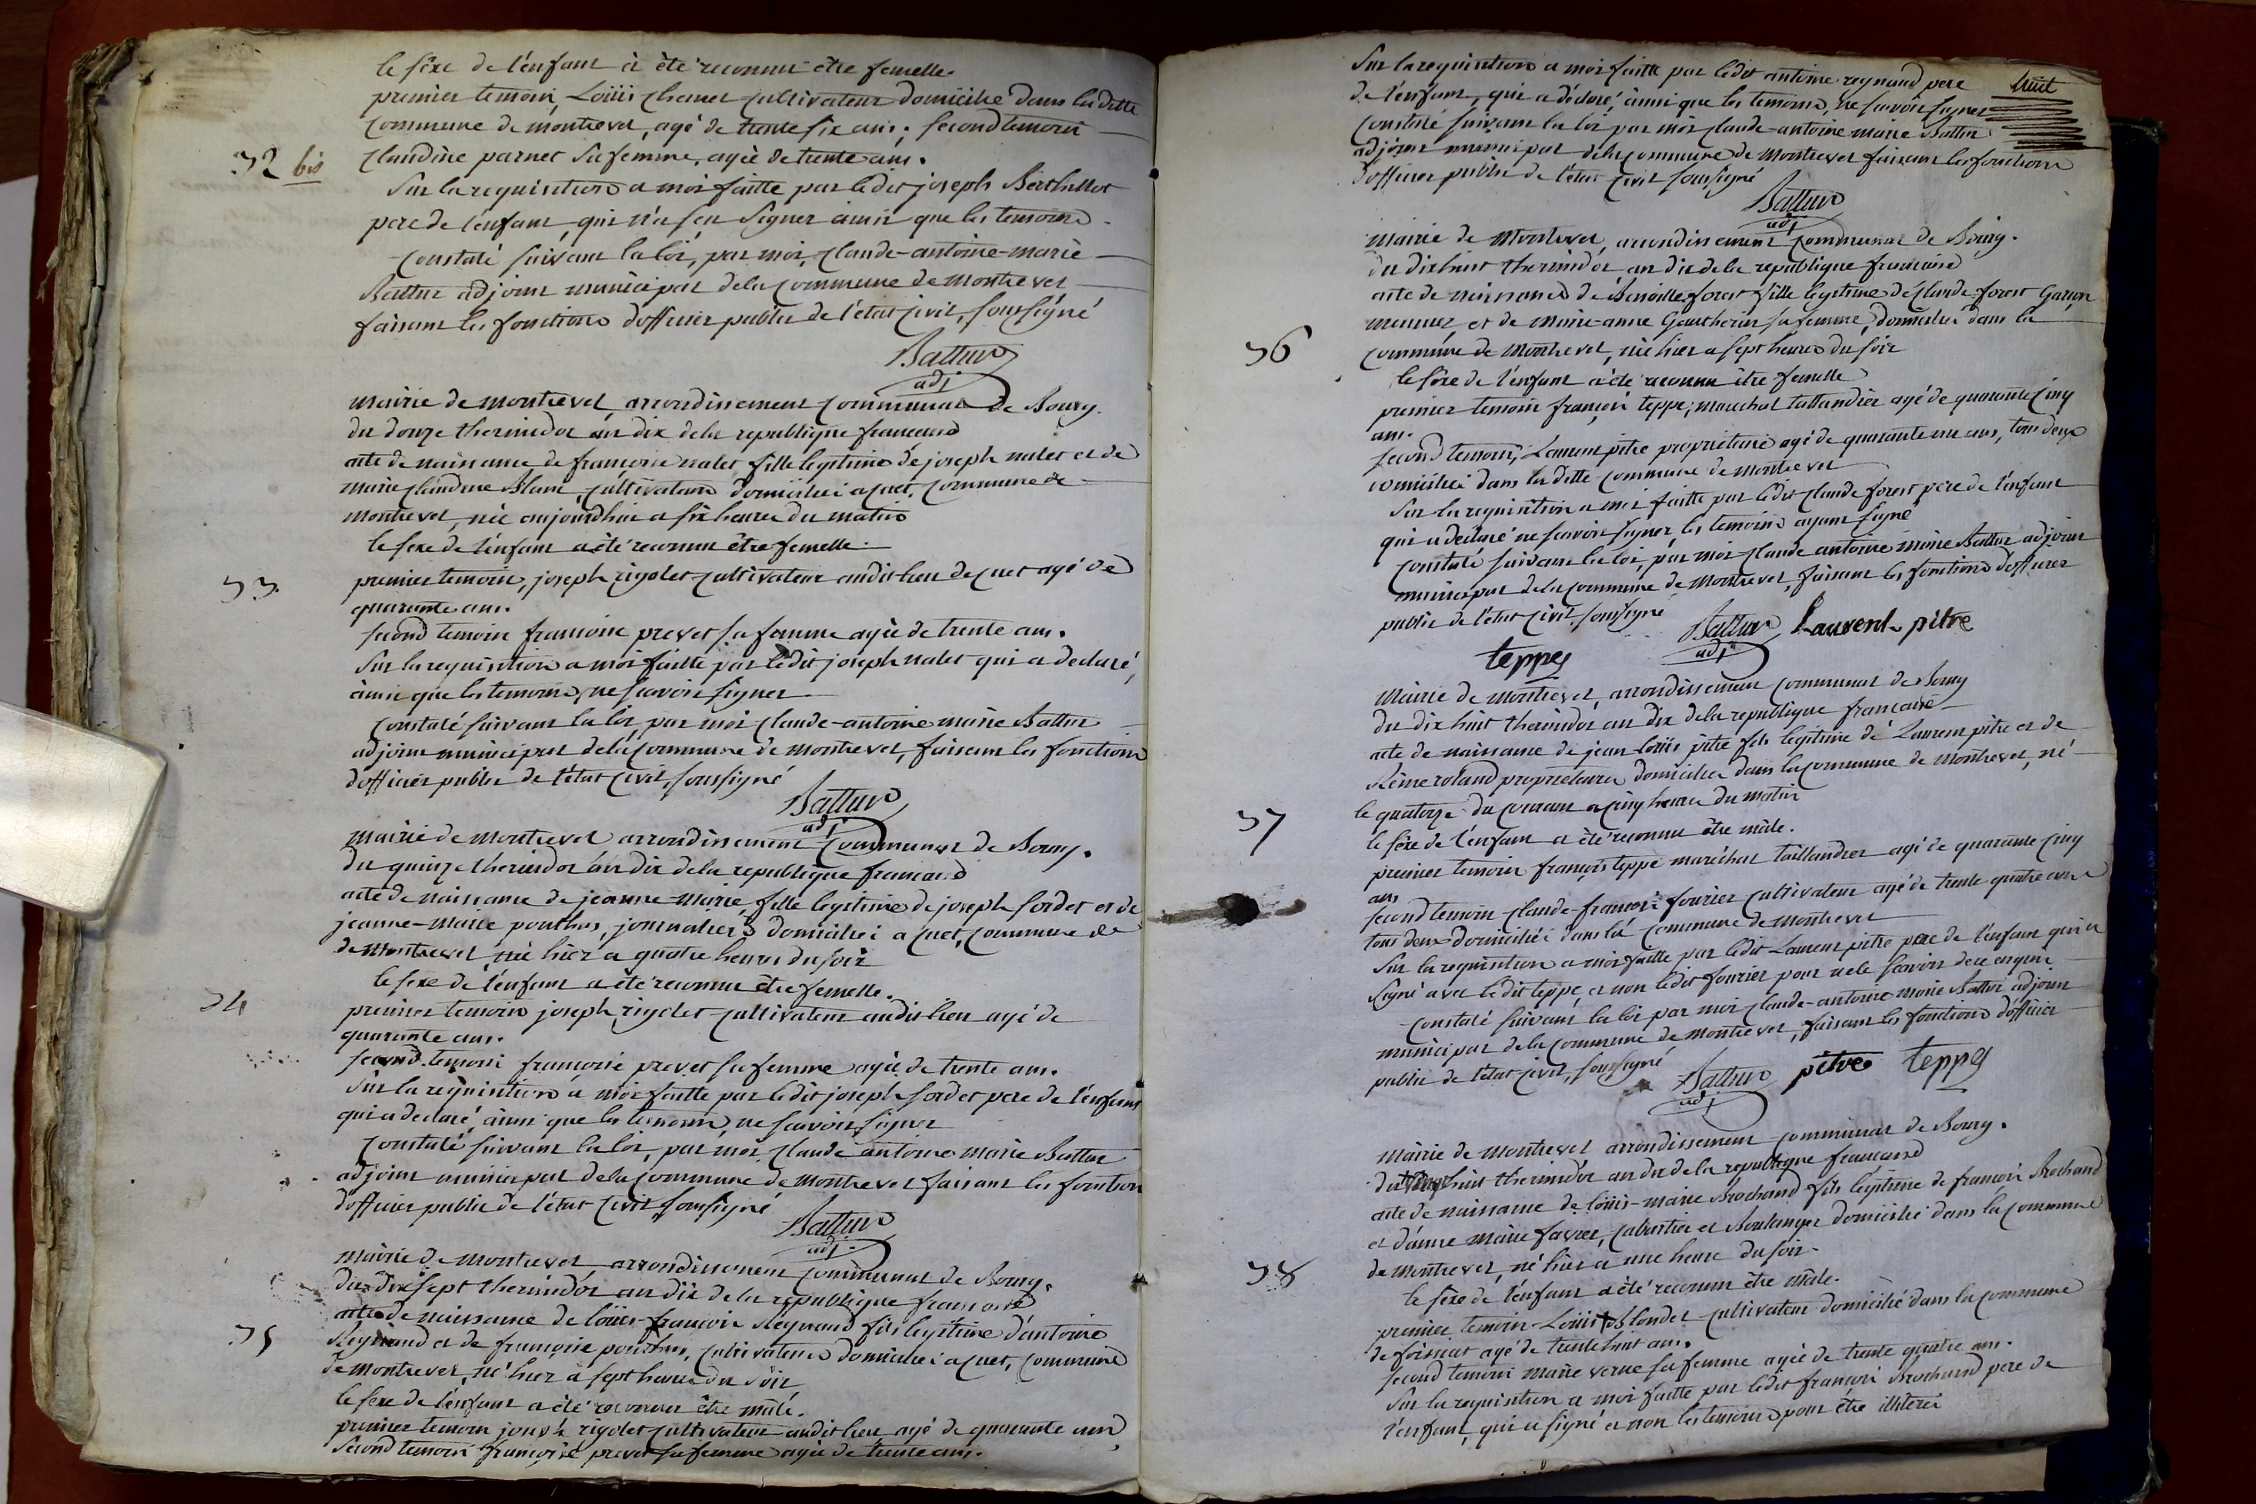 le sèxe de l'enfant à été reconnu être femelle.
premier temoin, Loüis chanel cultivateur domicilié dans la ditte
commune de montrevel, agé de trente six ans; second temoin
32 bis
claudine parnet sa femme, agée de trente ans.
Sur la requisition a moi faitte par ledit joseph Berthillot
pere de l'enfant, qui n'a seu signer ainsi que les temoins.
Constaté suivant la loi, par moi, claude-antoine-marie
Battur adjoint municipal de la commune de montrevel
faisant les fonctions d'officier public de l'état civil, soussigné
Battur
adj.
Mairie de montrevel, arrondissement communal de Bourg.
du douze thermidor an dix de la republique francaise
acte de naissance de francoise nalet, fille legitime de joseph nalet et de
marie claudine Blanc, cultivateurs domiciliés a cuet, commune de
montrevel, née aujourdhui a six heures du matin
le sexe de l'enfant a été reconnu être femelle.
33.
premier temoin, joseph rigolet cultivateur audit lieu de cuet agé de
quarante ans.
second temoin francoise prevet sa femme agée de trente ans.
Sur la requisition a moi faitte par ledit joseph nalet qui a declaré,
ainsi que les temoins, ne scavoir signer
Constaté suivant la loi, par moi claude-antoine marie Battur
adjoint municipal de la commune de montrevel, faisant les fonctions
d'officier public de l'état civil, soussigné
Battur
adj.
Mairie de montrevel arrondissement communal de Bourg.
du quinze thermidor an dix de la republique francaise
acte de naissance de jeanne-marie, fille legitime de joseph sordet et de
jeanne-marie pouthus, journaliers domiciliés a cuet, commune de
de montrevel, née hier a quatre heures du soir
le sexe de l'enfant a été reconnu être femelle.
34
premier temoin joseph rigolet cultivateur audit lieu agé de
quarante ans.
second temoin françoise prevet sa femme agée de trente ans.
Sur la requisition a moi faitte par ledit joseph sordet pere de l'enfant
qui a declaré, ainsi que les temoins, ne scavoir signer
Constaté suivant la loi, par moi claude antoine marie Battur
adjoint municipal de la commune de montrevel faisant les fonctions
d'officier public de l'état civil soussigné
Battur
adj.
Mairie de montrevel, arrondissement communal de Bourg.
du dix sept thermidor an dix de la republique francaise
acte de naissance de loüis-francois Reynaud fils legitime d'antoine
35
Reynaud et de françoise pouthus, cultivateurs domiciliés a cuet, commune
de montrevel, né hier à sept heures du soir
le sexe de l'enfant a été reconnu être mâle.
premier temoin joseph rigolet cultivateur audit lieu agé de quarante ans
second temoin françoise prevet sa femme agée de trente ans.
Sur la requisition a moi faitte par ledit antoine reynaud pere
huit
de l'enfant, qui a déclaré, ainsi que les temoins, ne scavoir signer
Constaté suivant la loi par moi claude-antoine marie Battur
adjoint municipal de la commune de montrevel faisant les fonctions
d'officier public de l'état civil soussigné
Battur
adj
Mairie de Montrevel, arrondissement communal de Bourg.
du dix huit thermidor, an dix de la republique francaise
acte de naissance de Benoitte forest fille legitime de claude forest Garçon
meunier, et de Marie-anne Gautherin sa femme, domiciliés dans la
36
commune de montrevel, née hier a sept heures du soir
le sèxe de l'enfant a été reconnu être femelle
premier temoin françois teppe, marechal taillandier agé de quarante cinq
ans.
second temoin, Laurent pitre proprietaire agé de quarante un ans, tous deux
domiciliés dans la ditte commune de montrevel
Sur la requisition a moi faitte par ledit claude forest père de l'enfant
qui a declaré ne scavoir signer, les temoins ayant signé
Constaté suivant la loi, par moi claude antoine marie Battur adjoint
municipal de la commune de montrevel, faisant les fonctions d'officier
public de l'état civil, soussigné
Battur Laurent pitre
adj.
teppe
Mairie de montrevel, arrondissement communal de Bourg
du dix huit thermidor an dix de la republique francaise
acte de naissance de jean loüis pitre fils legitime de Laurent pitre et de
Reine roland proprietaires domiciliés dans la commune de montrevel, né
37
le quatorze du courant a cinq heures du matin
le sexe de l'enfant a été reconnu être mâle.
premier temoin françois teppe maréchal taillandier agé de quarante cinq
ans
second temoin claude-françois fourier cultivateur agé de trente quatre ans
tous deux domiciliés dans la commune de montrevel
Sur la requisition a moi faitte par ledit Laurent pitre père de l'enfant qui a
signé avec ledit teppe, et non ledit fourier pour ne le scavoir de ce enquis
Constaté suivant la loi par moi claude-antoine marie Battur adjoint
municipal de la commune de montrevel, faisant les fonctions d'officier
public de l'état civil, soussigné
Battur pitre teppe
adj.
Mairie de montrevel arrondissement communal de Bourg.
du huit thermidor an dix de la republique francaise
acte de naissance de loüis-marie Brochand fils légitime de francois Brochand
et d'anne marie favier, cabaretier et Boulanger domicilié dans la commune
38
de montrevel, né hier a une heure du soir.
le sèxe de l'enfant a été reconnu être mâle.
premier temoin-Loüis Blondet cultivateur domicilié dans la commune
de foissiat agé de trente huit ans.
second temoin marie verne sa femme agée de trente quatre ans.
Sur la requisition a moi faitte par ledit françois Brochand pere de
l'enfant, qui a signé et non les temoins pour être illiterés